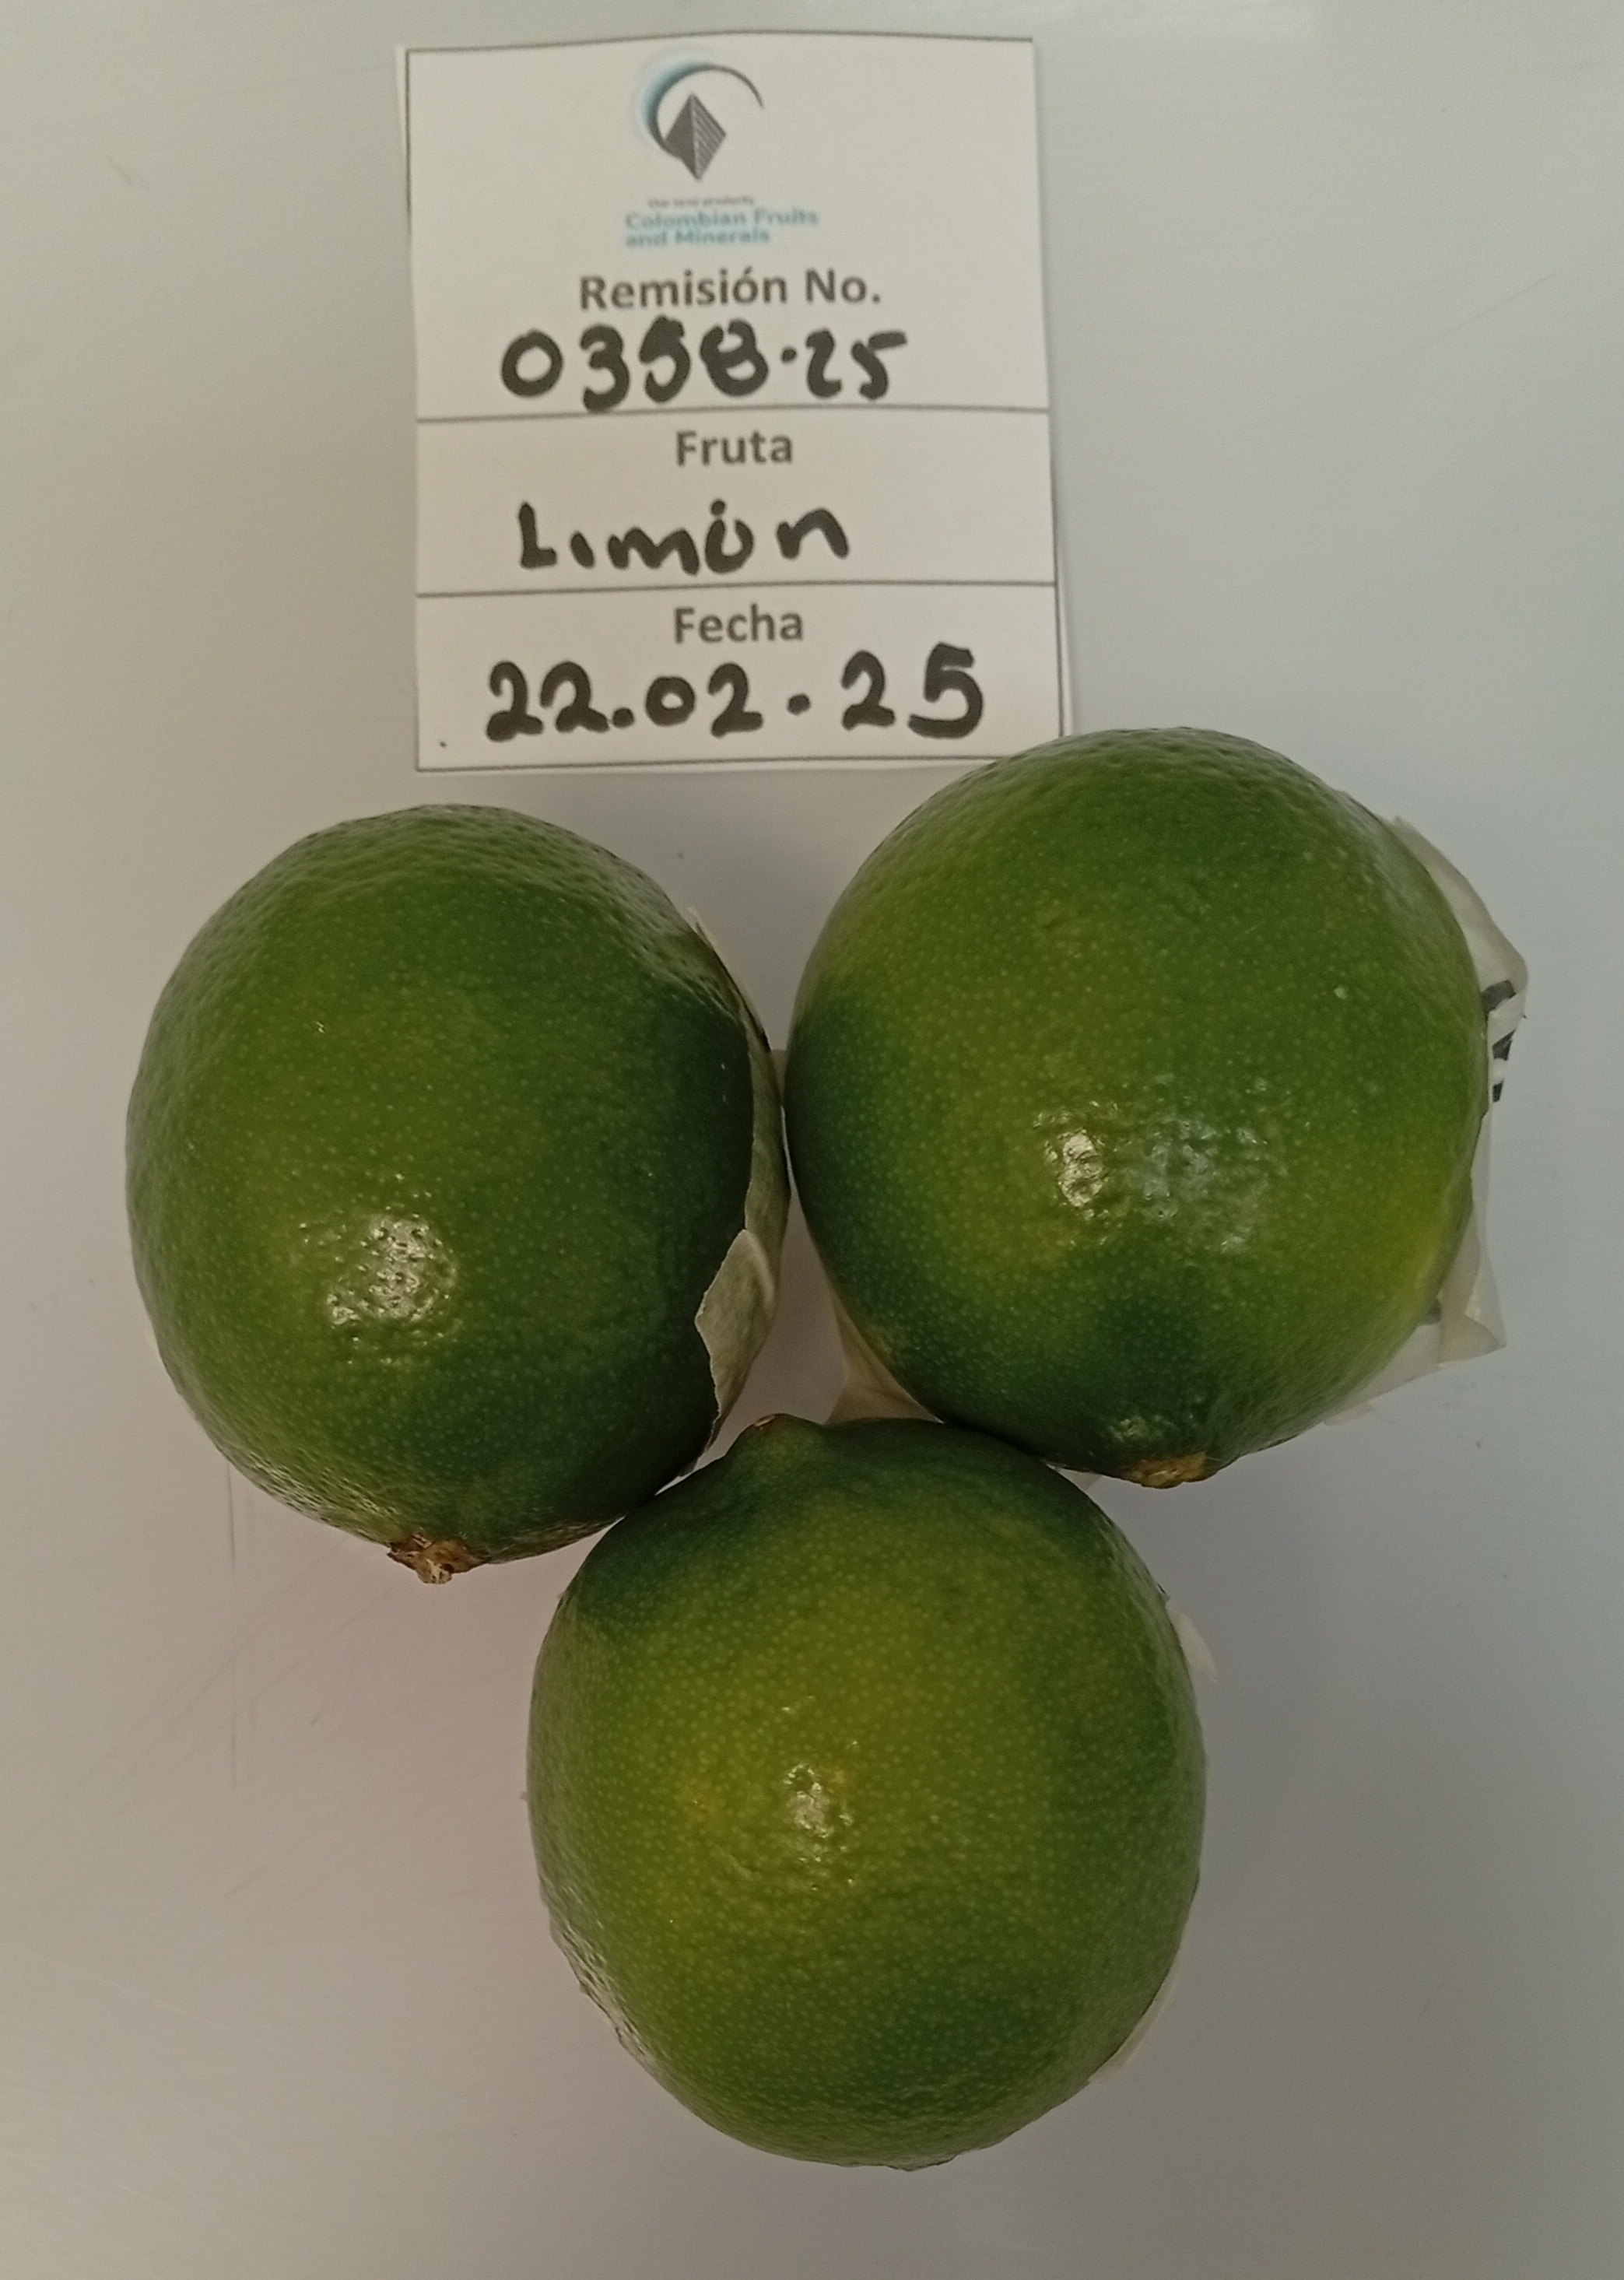 Our best products
Colombian Fruits
and Minerals
Remisión No.
0358.25
Fruta
Limón
Fecha
22.02.25